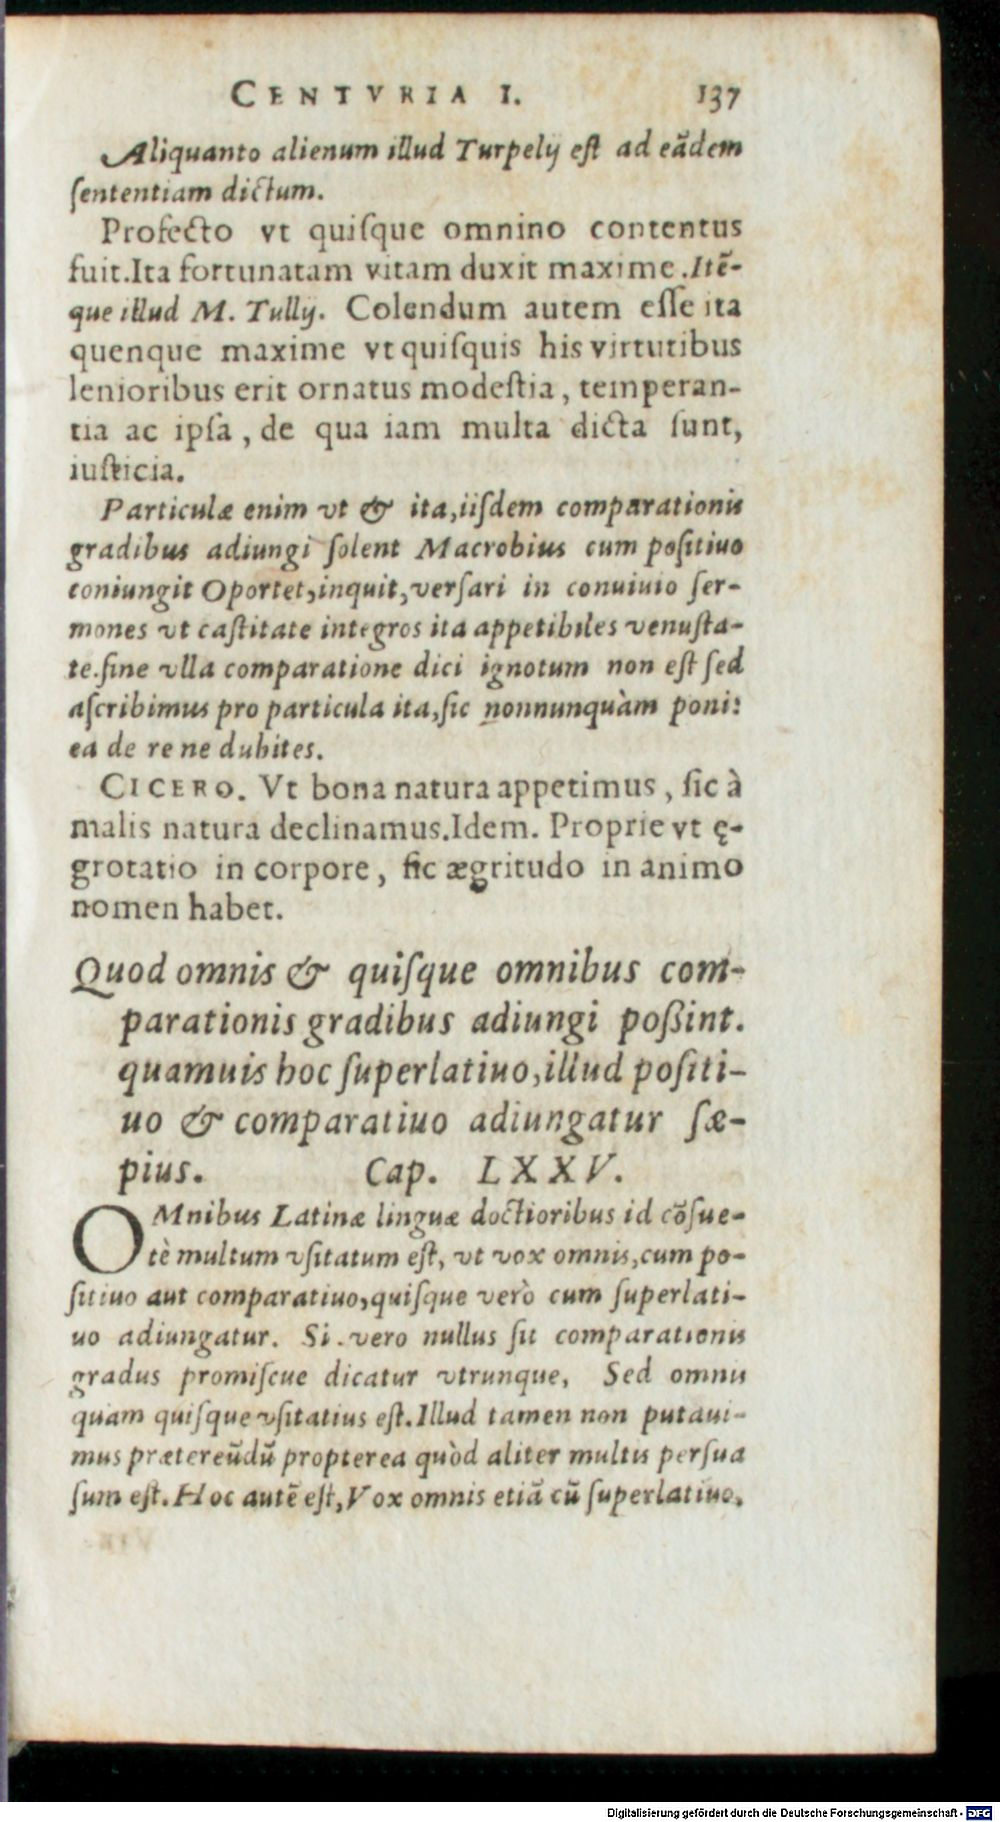 CENTVRIA I. 137
Aliquanto alienum illud Turpelij est ad eãdem
ſententiam dictum.
Profecto vt quiſque omnino contentus
fuit.Ita fortunatam vitam duxit maxime.Itẽ-
que illud M. Tullij. Colendum autem eſſe ita
quenque maxime vt quiſquis his virtutibus
lenioribus erit ornatus modeſtia, temperan-
tia ac ipſa, de qua iam multa dicta ſunt,
iuſticia.
Particulæ enim vt & ita,iiſdem comparationis
gradibus adiungi ſolent Macrobius cum poſitiuo
coniungit Oportet,inquit,verſari in conuiuio ſer-
mones vt caſtitate integros ita appetibiles venuſta-
te.ſine vlla comparatione dici ignotum non eſt ſed
aſcribimus pro particula ita,ſic nonnunquàm poni:
ea de re ne dubites.
CICERO. Vt bona natura appetimus, ſic à
malis natura declinamus.Idem. Proprie vt ę-
grotatio in corpore, ſic ægritudo in animo
nomen habet.
Quod omnis & quiſque omnibus com-
parationis gradibus adiungi poßint.
quamuis hoc ſuperlatiuo,illud poſiti-
uo & comparatiuo adiungatur ſæ-
pius. Cap. LXXV.
OMnibus Latinæ linguæ doctioribus id cõſue-
tè multum vſitatum eſt, vt vox omnis,cum po-
ſitiuo aut comparatiuo,quiſque verò cum ſuperlati-
uo adiungatur. Si vero nullus ſit comparationis
gradus promiſcue dicatur vtrunque, Sed omnis
quam quiſque vſitatius eſt.Illud tamen non putaui-
mus prætereũdũ propterea quòd aliter multis perſua
ſum eſt.Hoc autẽ eſt,Vox omnis etiã cũ ſuperlatiuo,
Digitalisierung gefördert durch die Deutsche Forschungsgemeinschaft - DFG